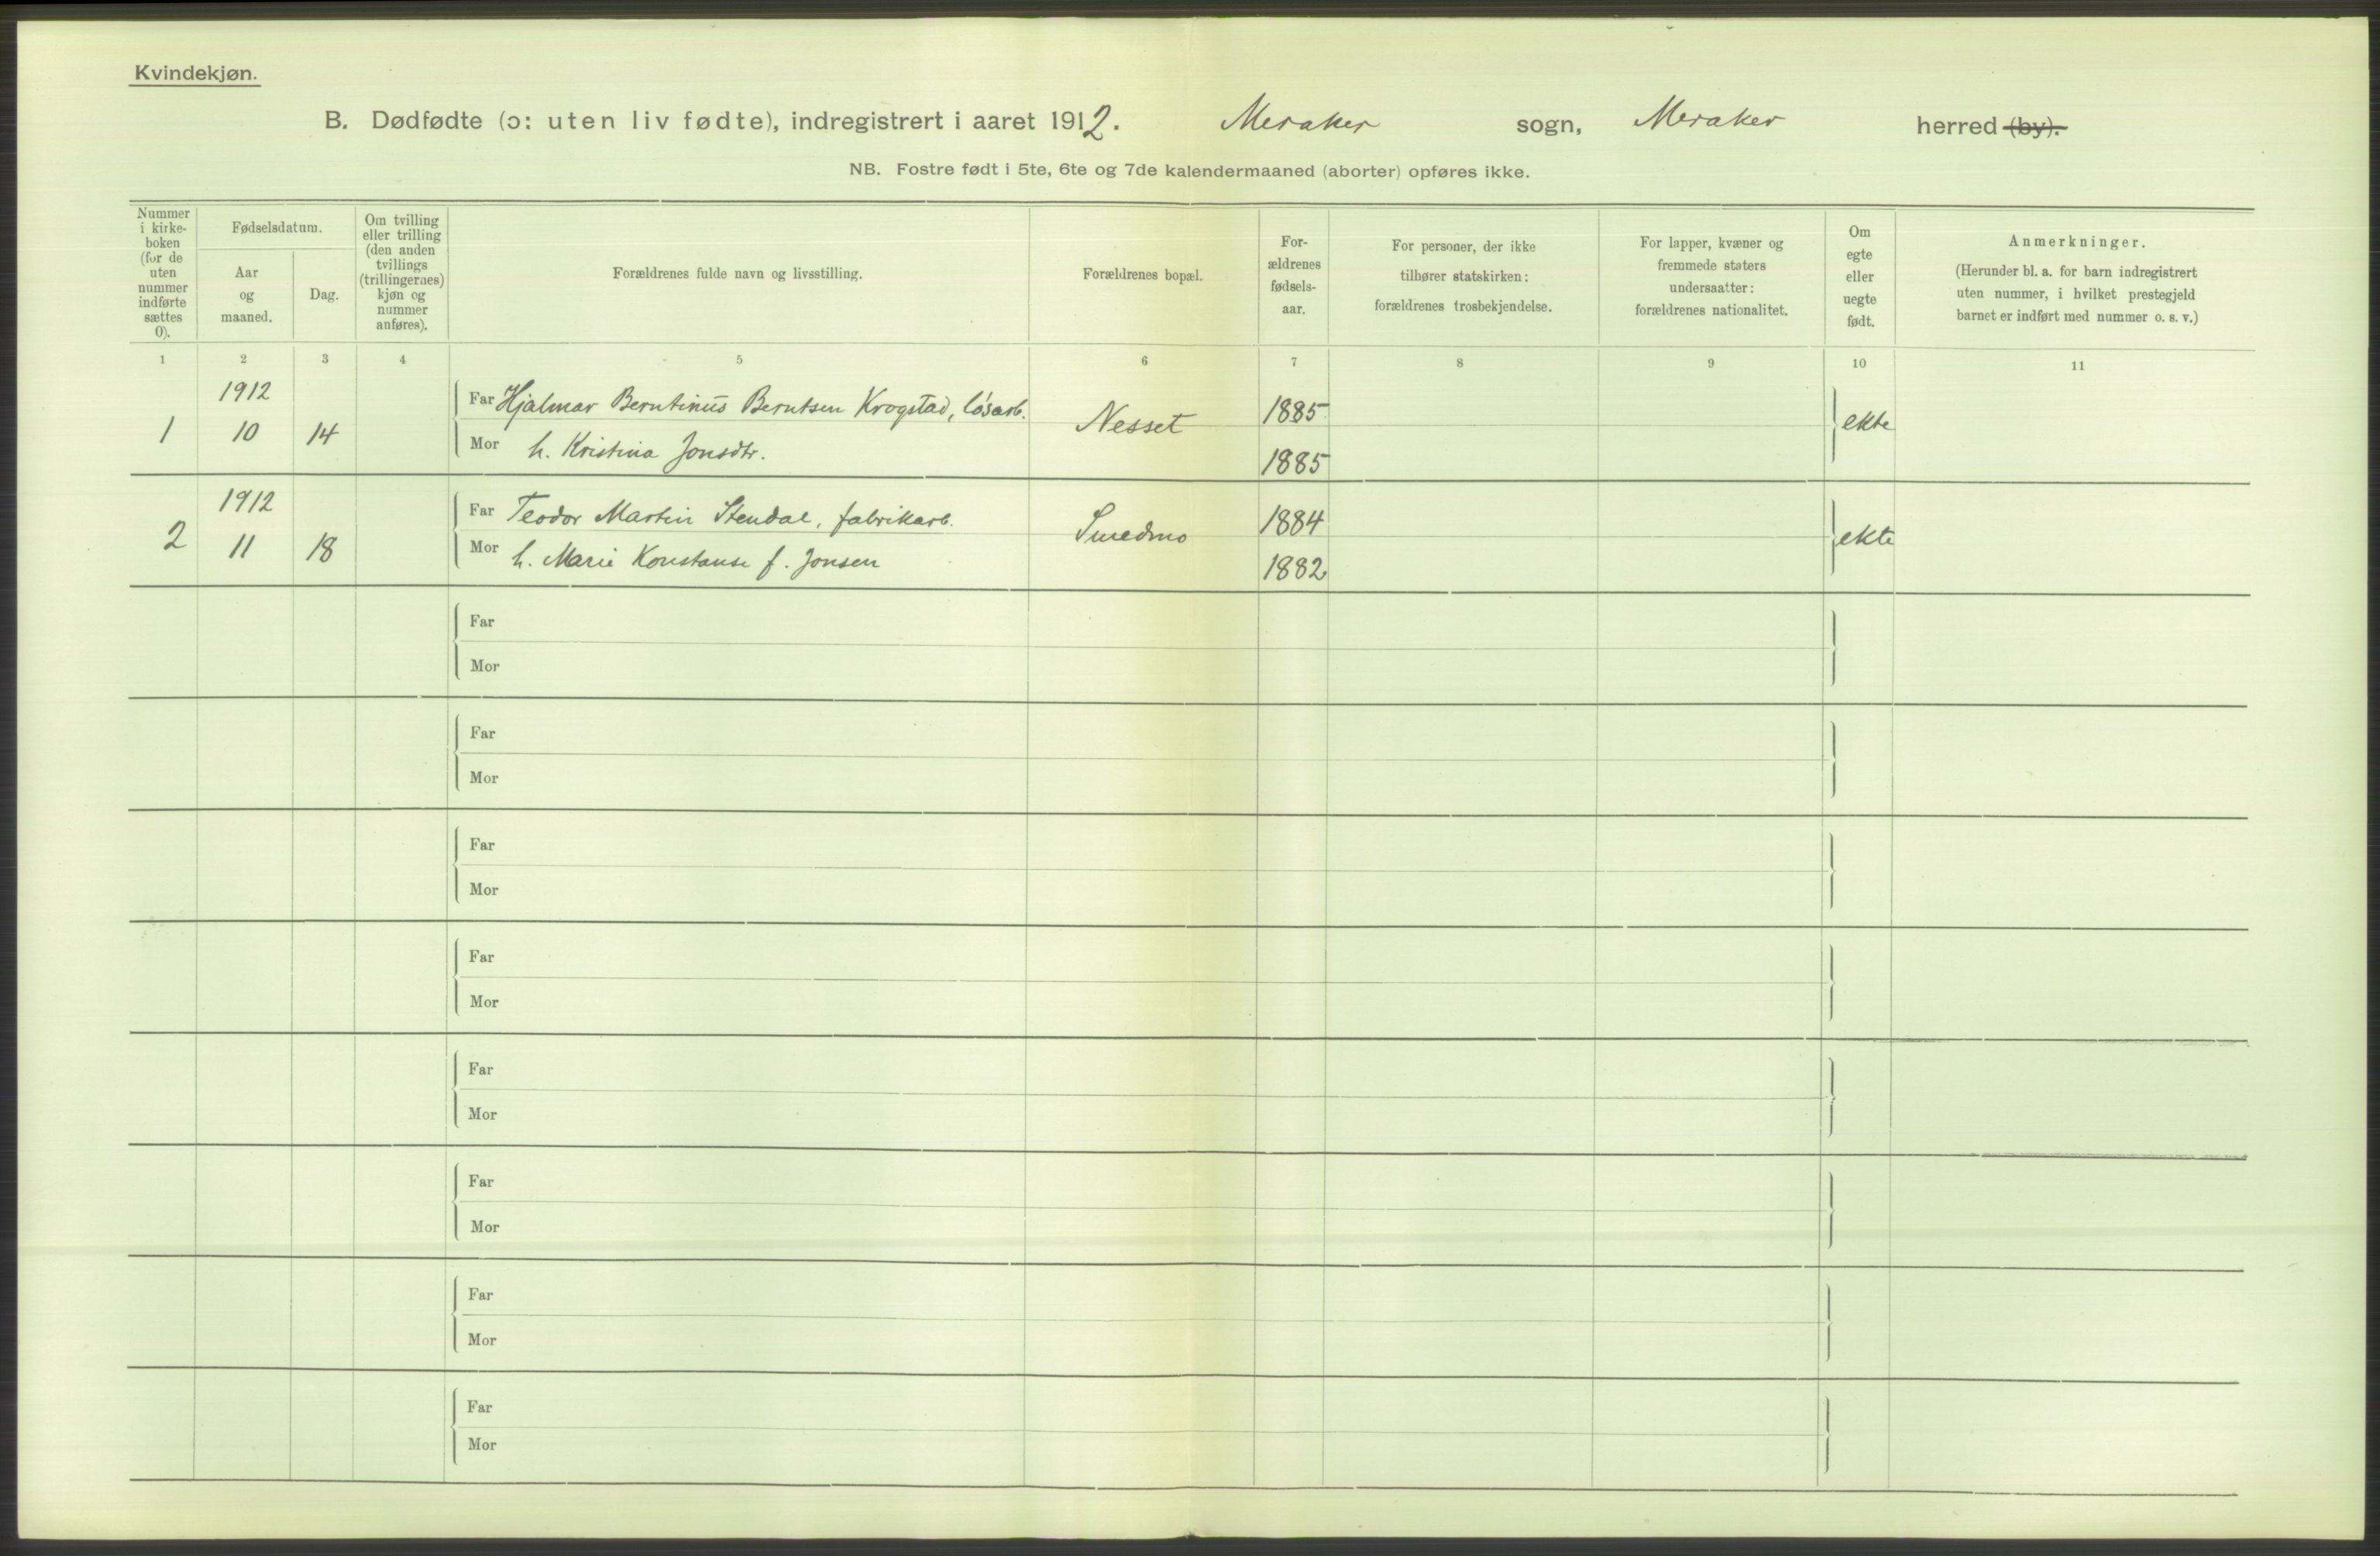 Kvindekjøn.
B. Dødfødte (ɔ: uten liv fødte), indregistrert i aaret 1912. Meraker sogn, Meraker herred (by).
NB. Fostre født i 5te, 6te og 7de kalendermaaned (aborter) opføres ikke.
Nummer
i kirke-
boken
(for de
uten
nummer
indførte
sættes
0).
Fødselsdatum.
Aar
og
maaned.
Dag.
Om tvilling
eller trilling
(den anden
tvillings
(trillingernes)
kjøn og
nummer
anføres).
Forældrenes fulde navn og livsstilling.
Forældrenes bopæl.
For-
ældrenes
fødsels-
aar.
For personer, der ikke
tilhører statskirken:
forældrenes trosbekjendelse.
For lapper, kvæner og
fremmede staters
undersaatter:
forældrenes nationalitet.
Om
egte
eller
uegte
født.
Anmerkninger.
(Herunder bl. a. for barn indregistrert
uten nummer, i hvilket prestegjeld
barnet er indført med nummer o. s. v.)
1 2 3 4 5 6 7 8 9 10 11
1912 Far Hjalmar Berntinus Berntsen Krogstad, løsarb. 1885
1 10 14 Nesset ekte
Mor h. Kristina Jonsdtr. 1885
1912 Far Teodor Martin Stendal, fabrikarb. 1884
2 11 18 Smedmo ekte
Mor h. Marie Konstanse f. Jonsen 1882
Far
Mor
Far
Mor
Far
Mor
Far
Mor
Far
Mor
Far
Mor
Far
Mor
Far
Mor